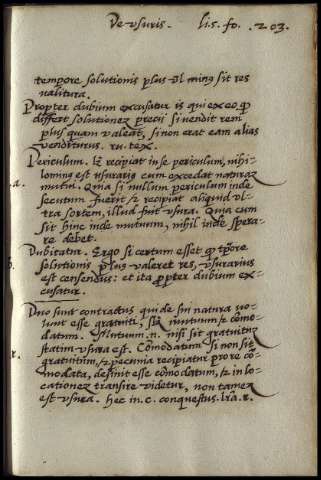 De vsuris. lis. fo. 203.
tempore solutionis plus vl minus sit res
valitura.
Propter dubium excusatur is qui ex eo q
differt solutionez precii si vendit rem
plus quam valeat, si non erat eam alias
venditurus. ru. tex.
Periculum. recipiat in se periculum, nihi-
lominus est usurarius cum excedat naturaz
mutui. Quia si nullum periculum inde
secutum fuerit et recipiat aliquid vl-
tra sortem, illud fuit vsura. Quia cum
sit hinc inde mutuum, nihil inde spera-
re debet.
Dubitatur. Ergo si certum esset q tpore
solutionis plus valeret res, vsurarius
est censendus: et ita propter dubium ex-
cusatur.
Duo sunt contractus qui de sui natura vo-
lunt esse gratuiti, mutuum et cōmo-
datum. Mutuum .n. nisi sit gratuituz
statim vsura est. Cōmodatum si non sit
gratuitum, et pecunia recipiatur pro re cō-
modata, desinit esse cōmodatum, et in lo-
cationez transire videtur, non tamen
est vsura. hec in. c. conquestus. lrā. r.